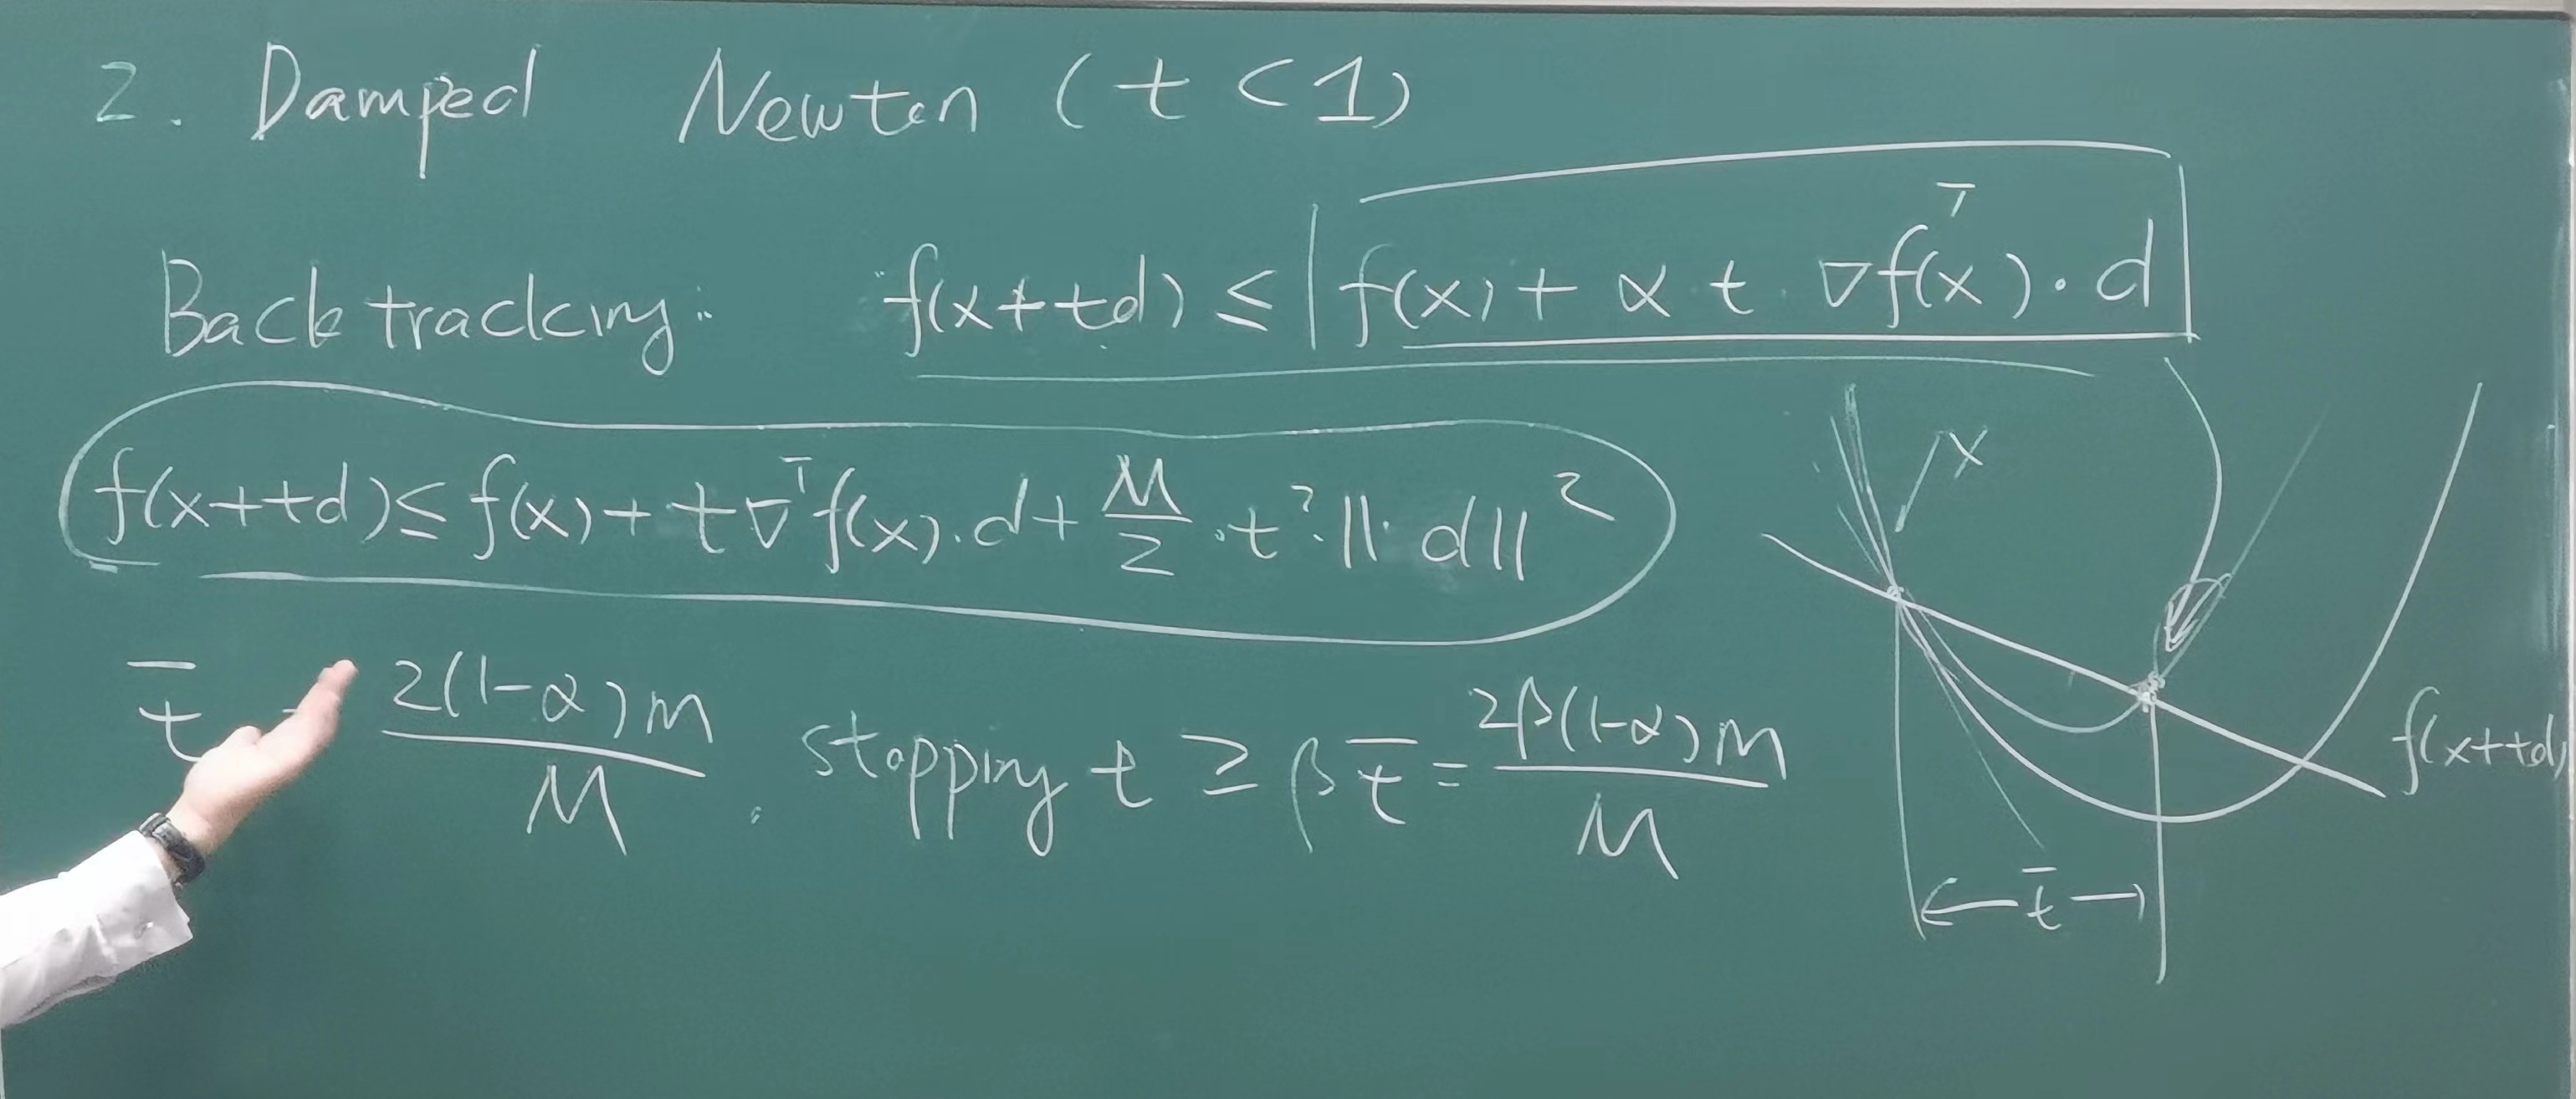 2. Damped Newton (t < 1)
Backtracking: f(x+td) ≤ f(x) + α t ∇f(x)ᵀ · d
f(x+td) ≤ f(x) + t∇ᵀf(x) · d + M/2 · t² · ||d||²
x
t̄ = 2(1-α)m/M . stopping t ≥ βt̄ = 2β(1-α)m/M
f(x+td)
t̄